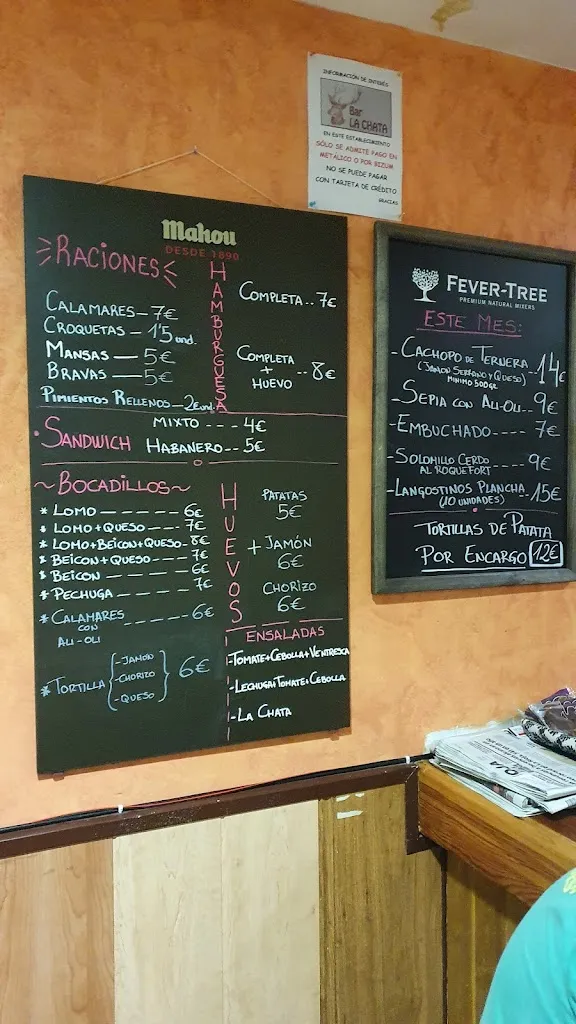 INFORMACIÓN DE INTERÉS
Bar
LA CHATA
EN ESTE ESTABLECIMIENTO
SÓLO SE ADMITE PAGO EN
METÁLICO O POR BIZUM
NO SE PUEDE PAGAR
CON TARJETA DE CRÉDITO
GRACIAS
Mahou
DESDE 1890
RACIONES
CALAMARES - 7€
CROQUETAS - 1'5 und.
MANSAS — 5€
BRAVAS — 5€
PIMIENTOS RELLENOS - 2€ und.
HAMBURGUESA
COMPLETA .. 7€
COMPLETA
+
HUEVO -- 8€
SANDWICH
MIXTO ---- 4€
HABANERO -- 5€
~BOCADILLOS~
* LOMO — — — — 6€
* LOMO+QUESO ---- 7€
* LOMO+BEICON+QUESO -- 8€
* BEICON+QUESO --- 7€
* BEICON — — — — 6€
* PECHUGA - - - - 7€
* CALAMARES
CON
ALI-OLI - - - 6€
* TORTILLA
-JAMÓN
-CHORIZO
-QUESO
6€
HUEVOS
PATATAS
5€
+ JAMÓN
6€
CHORIZO
6€
ENSALADAS
-TOMATE+CEBOLLA+VENTRESCA
-LECHUGA+TOMATE+CEBOLLA
-LA CHATA
FEVER-TREE
PREMIUM NATURAL MIXERS
ESTE MES:
-CACHOPO DE TERNERA
(JAMÓN SERRANO Y QUESO)
MINIMO 500GR
14€
-SEPIA CON ALI-OLI -- 9€
-EMBUCHADO ---- 7€
-SOLOMILLO CERDO
AL ROQUEFORT ---- 9€
-LANGOSTINOS PLANCHA
(10 UNIDADES) --- 15€
TORTILLAS DE PATATA
POR ENCARGO 12€